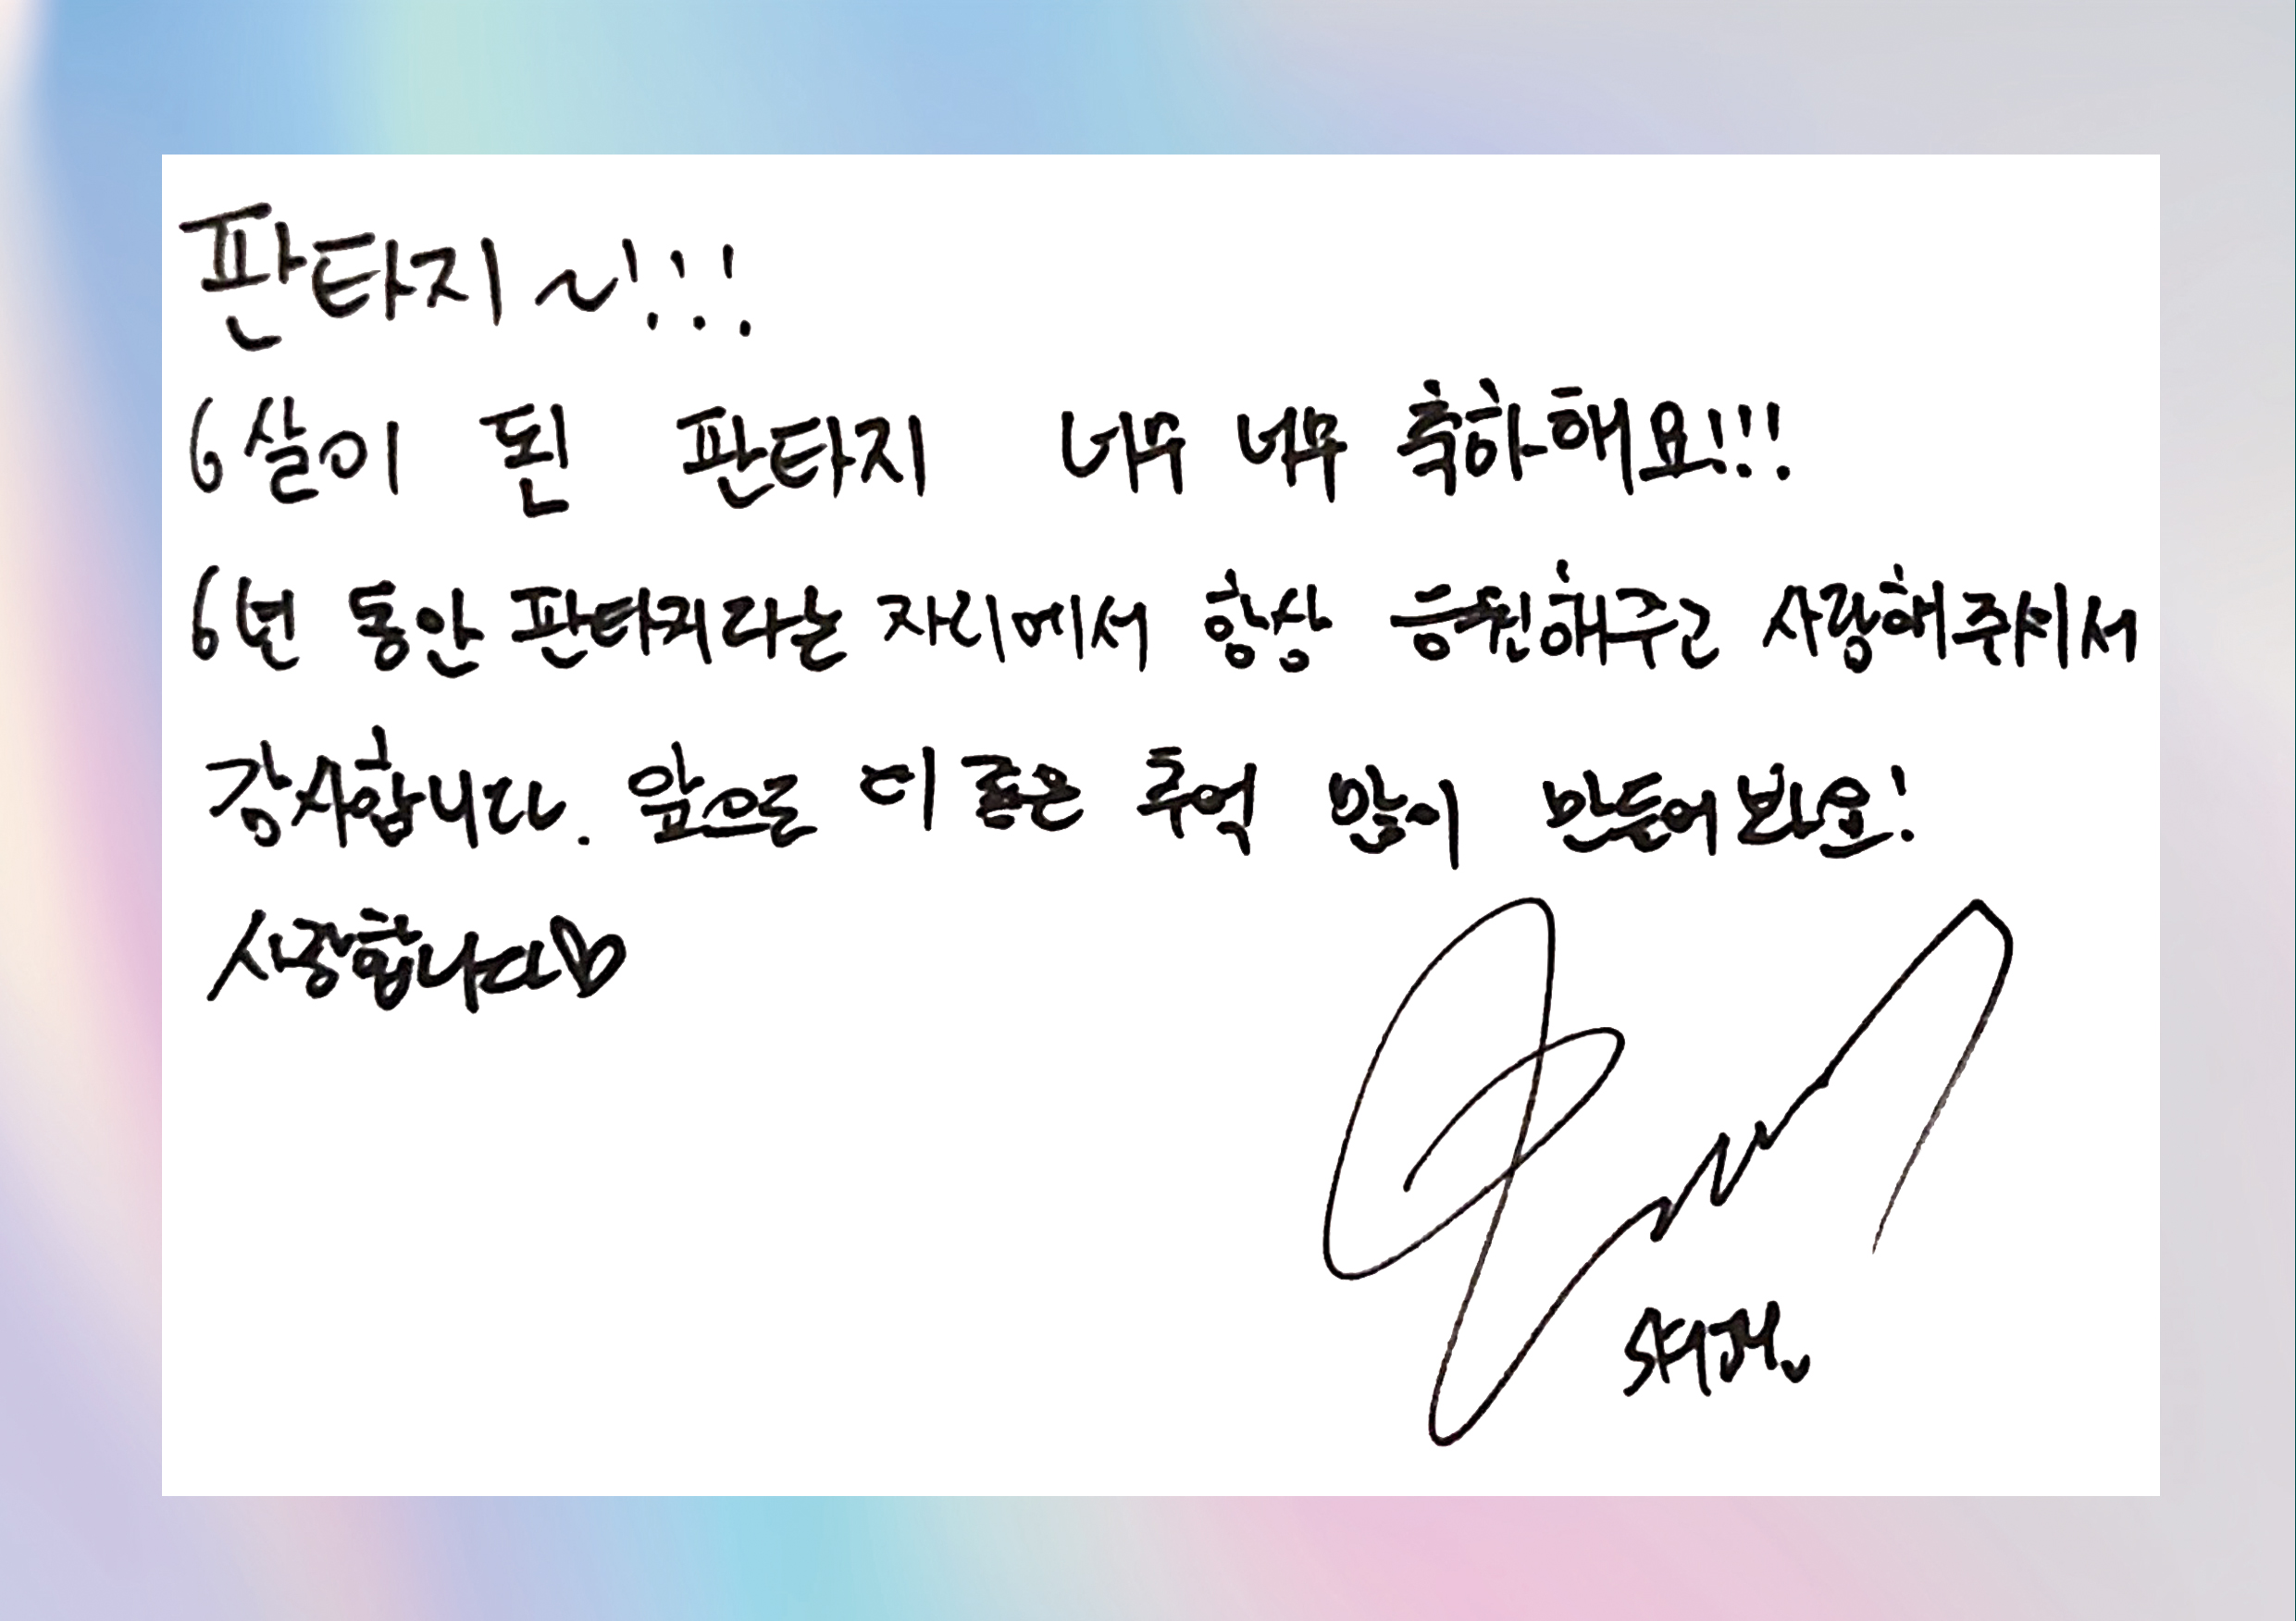 판타지~!!!
6살이 된 판타지 너무 너무 축하해요!!!
6년 동안 판타지라는 자리에서 항상 응원해주고 사랑해주셔서
감사합니다. 앞으로 더 좋은 추억 많이 만들어봐요!
사랑합니다♡